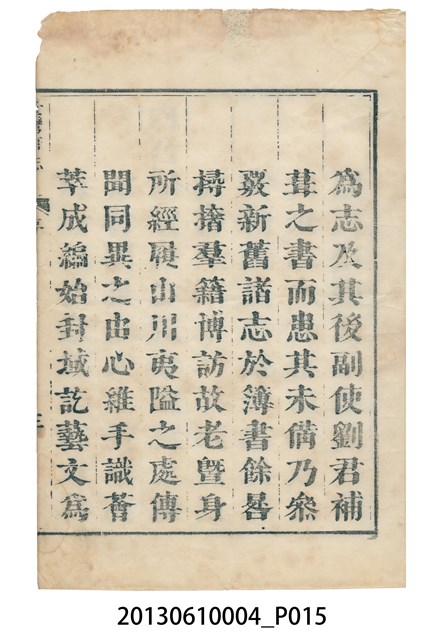 為志及其後副使劉君補
葺之書而患其未備乃叅
覈新舊諸志於簿書餘晷
撏撦羣籍博訪故老曁身
所經歷山川夷隘之處傳
聞同異之由心維手識薈
萃成編始封域訖藝文為
20130610004_P015